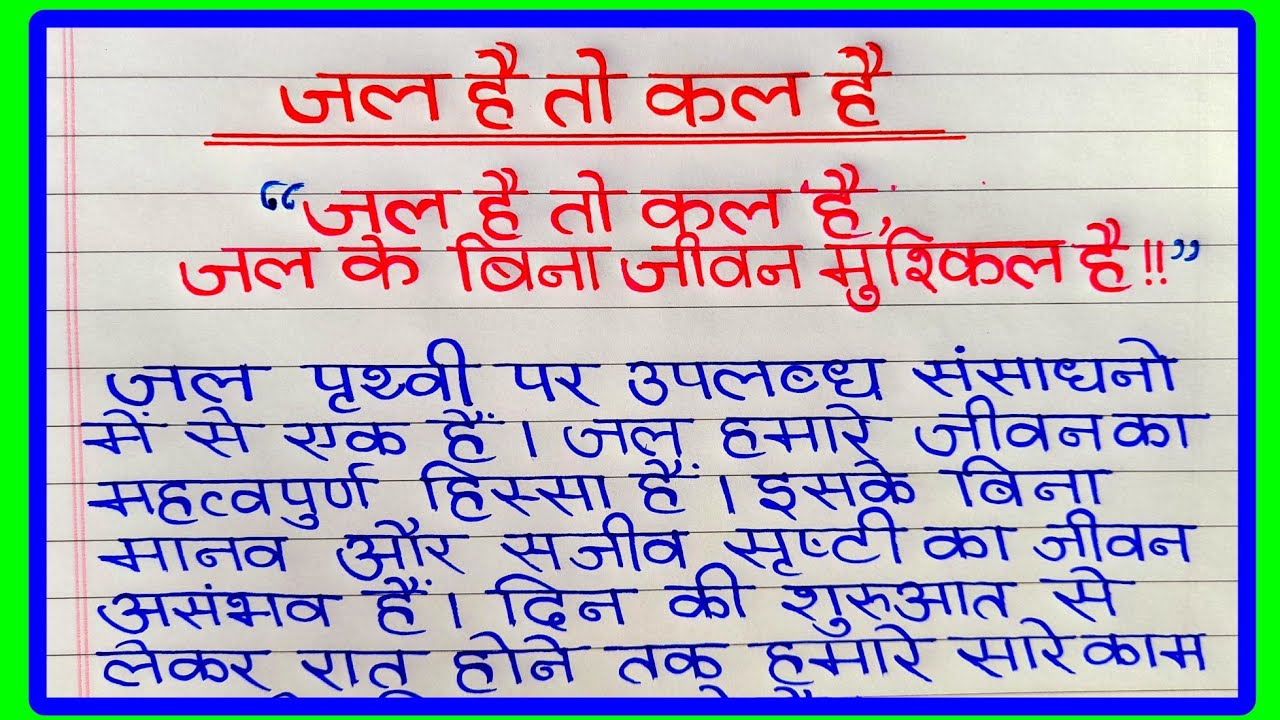 जल है तो कल है
“जल है तो कल है,
जल के बिना जीवन मुश्किल है!!”
जल पृथ्वी पर उपलब्ध संसाधनो
में से एक हैं। जल हमारे जीवन का
महत्वपुर्ण हिस्सा हैं। इसके बिना
मानव और सजीव सृष्टी का जीवन
असंभव हैं। दिन की शुरुआत से
लेकर रात होने तक हमारे सारे काम